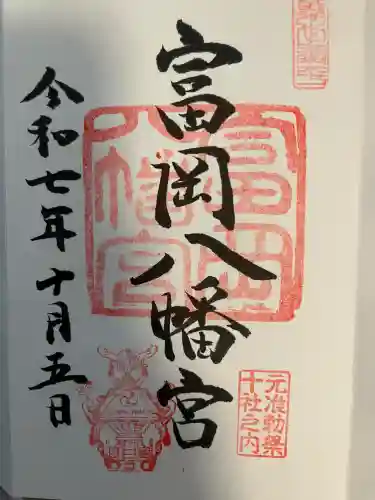 富岡八幡宮
令和七年十月五日
富岡
八幡宮
元准勅祭
十社之内